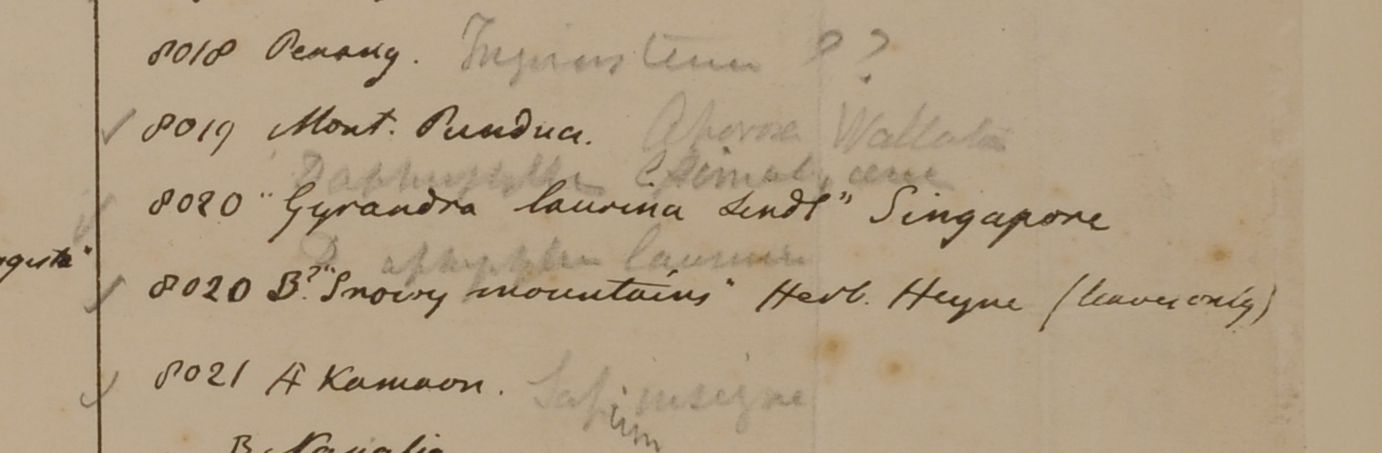 8018 Penang. ?
8019 Mont. Pundua. Aporosa Wallichii
Daphniphyllu himalayense
8020 "Gyrandra laurina Lindl" Singapore
Daphniphyllu laurinu
8020 B? "Snowy mountains" Herb. Heyne (leaves only)
8021 A Kamaon. Sapium insigne
B. Napalia